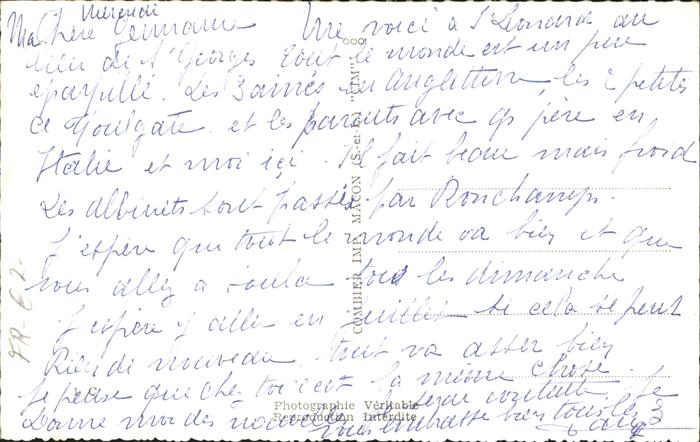 Mercredi
Ma Chère Germaine Me voici à St Léonard au
lieu de St Georges tout le monde est un peu
éparpillé. Les 3 ainés en Angleterre, les 2 petites
et les parents avec père en
Italie et moi ici. Il fait beau mais froid
Les sont passés par Ronchamps.
J'espère que tout le monde va bien et que
vous allez a tous les dimanche
J'espère y aller en Juillet si cela se peut
Rien de nouveau, tout va assez bien
je pense que chez toi c'est la même chose.
Donne moi des nouvelles serai contente. Je
vous embrasse bien tous les 3
COMBIER IMP. MACON (S.-et-L.) "CIM"
Photographie Véritable
Reproduction Interdite